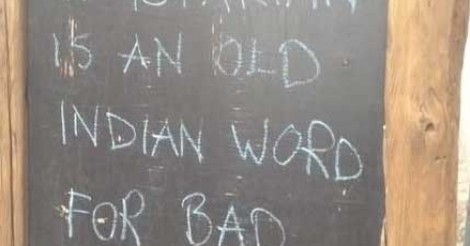 IS AN OLD
INDIAN WORD
FOR BAD